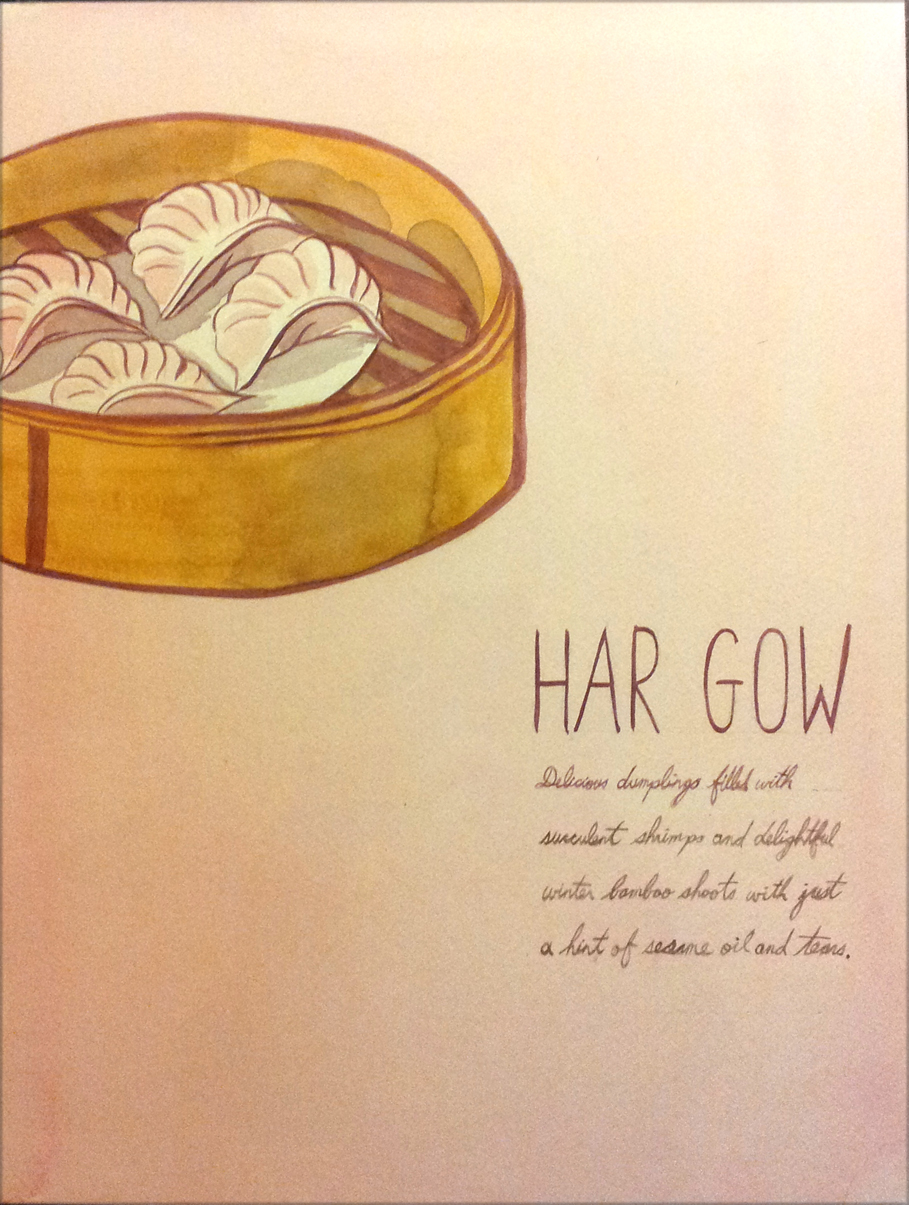 HAR GOW
Delicious dumplings filled with
succulent shrimps and delightful
winter bamboo shoots with just
a hint of sesame oil and tears.